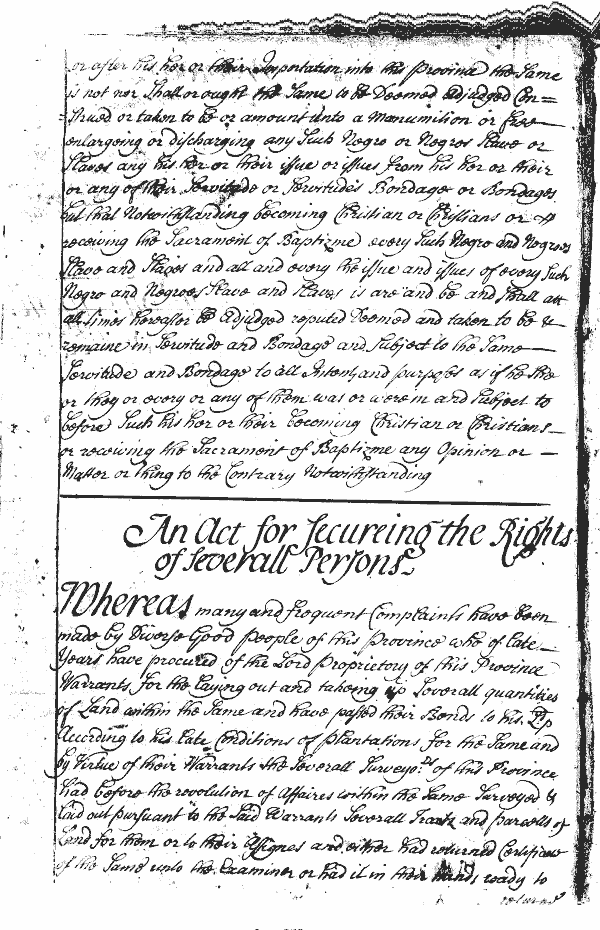 or after his her or their Importation into this Province the Same
is not nor Shall or ought the Same to be Deemed adjudged Con=
=strued or taken to be or amount unto a Manumition or free
enlargeing or discharging any Such Negro or Negros Slave or
Slaves any his her or their issue or issues from his her or their
or any of their Servitude or Servitudes Bondage or Bondages
but that Notwithstanding becoming Christian or Christians or
receiving the Sacrament of Baptizme every Such Negro and Negroes
Slave and Slaves and all and every the issue and issues of every Such
Negro and Negroes Slave and Slaves is are and be and Shall att
all times hereafter be adjudged reputed Deemed and taken to be &
remaine in Servitude and Bondage and Subject to the Same
Servitude and Bondage to all Intents and purposes as if he she
or they or every or any of them was or were in and Subject to
before Such his her or their becoming Christian or Christians
or receiving the Sacrament of Baptizme any Opinion or
Matter or thing to the Contrary Notwithstanding
An Act for Secureing the Rights
of Severall Persons
Whereas many and frequent Complaints have been
made by Diverse Good people of this Province who of late
Years have procured of the Lord Proprietory of this Province
Warrants for the Laying out and takeing up Severall quantities
of Land within the Same and have passed their Bonds to his Lsp
According to his late Conditions of Plantations for the Same and
by Virtue of their Warrants the Severall Surveyors of this Province
had before the revolution of Affaires within the Same Surveyed &
laid out pursuant to the said Warrants Severall Tracts and parcells of
Land for them or to their Assignes and either had returned Certificates
of the Same unto the Examiner or had it in their hands ready to
returne